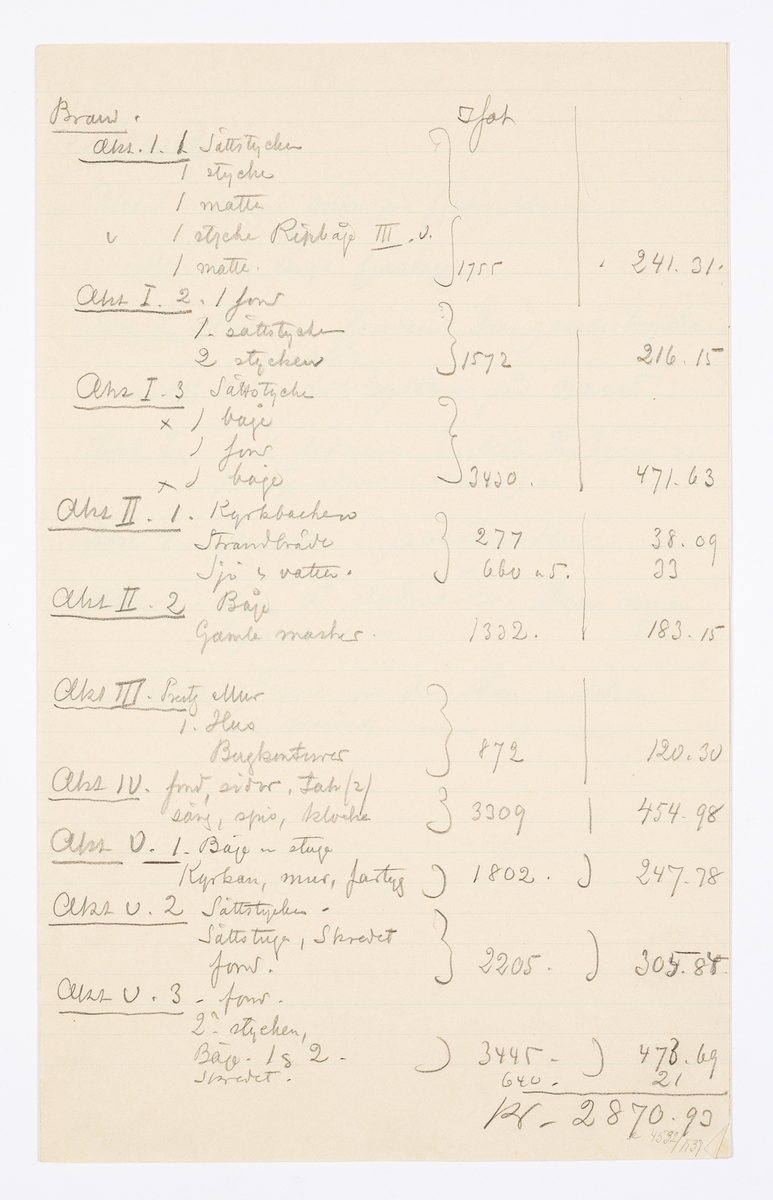 Brand.
Akt. 1. 1 Sättstycken
1 stycke
1 matta
v 1 stycke Ripbåge III. v.
1 matta. 1755 241.31.
Akt I. 2. 1 fond
1. sättstycken
2 stycken 1572 216.15
Akt I. 3 Sättstycke
x 1 båge
1 fond
x 1 båge 3430. 471.63
Akt II. 1. Kyrkbacken
Strandbrädd 277 38.09
Sjö & vatten. 660 a 5. 33
Akt II. 2 Båge
Gamla masker. 1332. 183.15
Akt III. Mur
1. Hus
Bergkonturer 872 120.30
Akt IV. fond, sidor, tak (2)
säng, spis, klocka 3309 454.98
Akt V. 1. Båge stuga
Kyrkan, mur, fartyg 1802. 247.78
Akt V. 2 Sättstycken -
Sättstuga, Skredet
fond. 2205. 305.84
Akt V. 3 - fond.
2 stycken,
Båge - 1 & 2 - 3445 - 473.69
Skredet. 640. 21
Kr - 2870.93